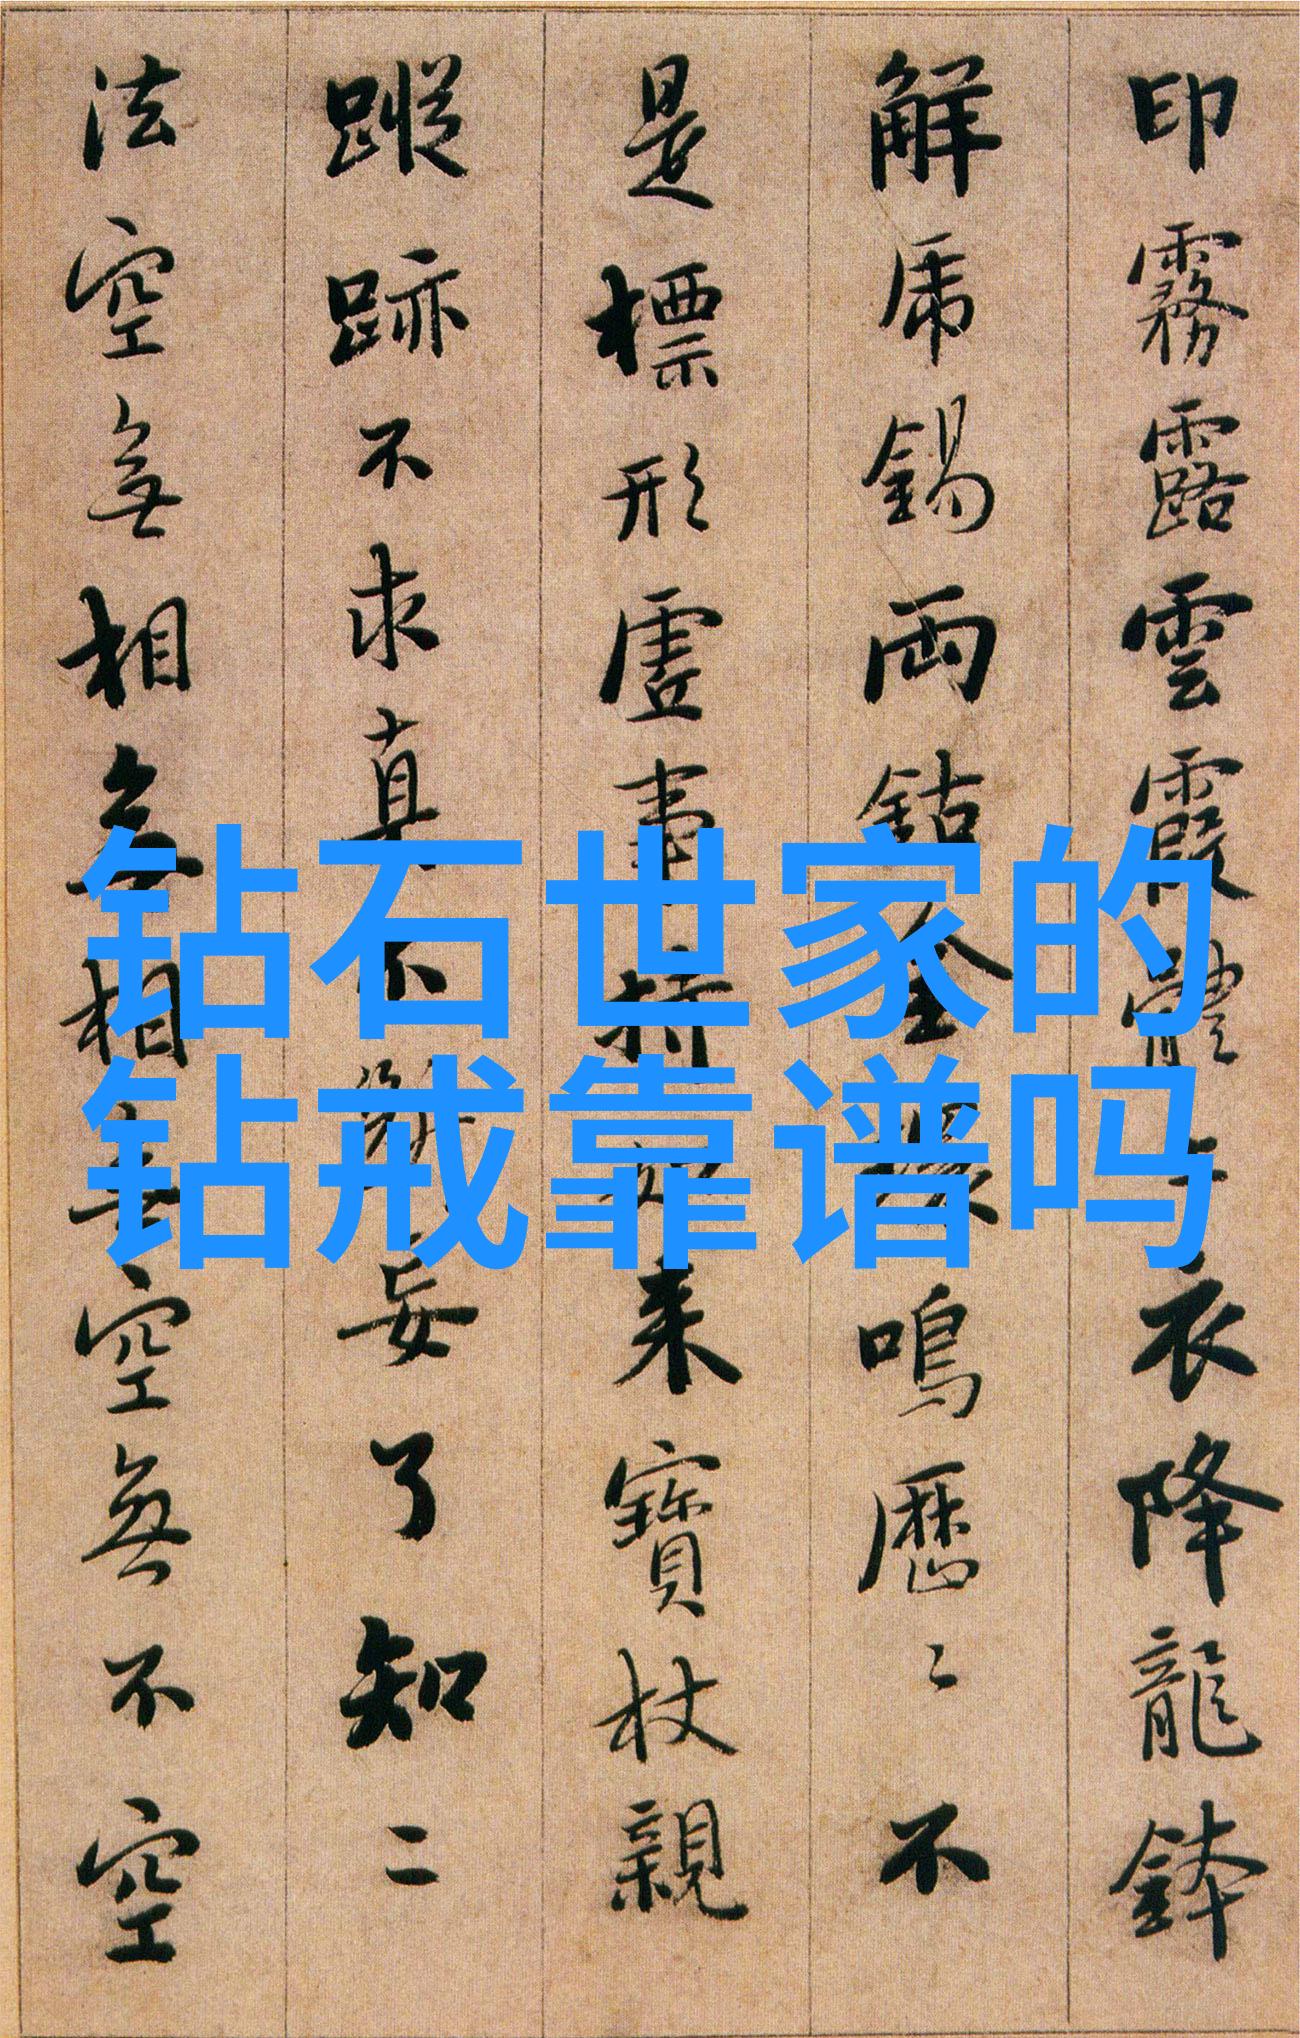 印霧露雲霞體上衣降龍鉢
解虎錫兩鈷金環鳴歷〻不
是標形虛事持如來寶杖親
蹤跡不求真不斷妄了知二
法空無相無相無空無不空
钻石世家的
钻戒靠谱吗